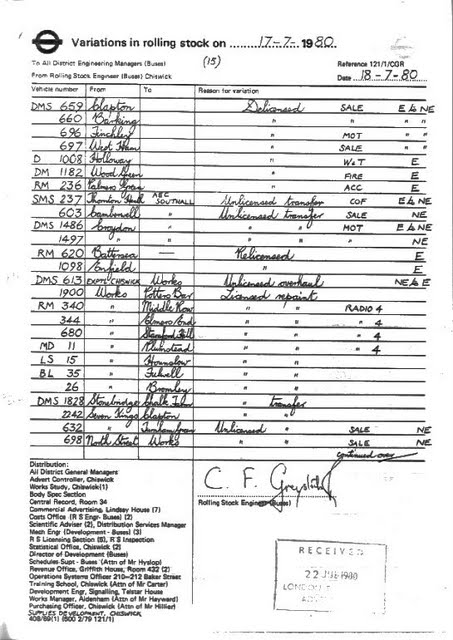 Variations in rolling stock on 17-7-1980
To All District Engineering Managers (Buses) (15) Reference 121/1/CGR
From Rolling Stock Engineer (Buses) Chiswick Date 18-7-80
Vehicle number From To Reason for variation
DMS 659 Clapton Delicensed SALE E & NE
660 Barking " " " "
696 Finchley " MOT " "
697 West Ham " SALE " "
D 1008 Holloway " W&T E
DM 1182 Wood Green " FIRE E
RM 236 Palmers Green " ACC E
SMS 237 Thornton Heath ABC SOUTHALL Unlicensed transfer COF E & NE
603 Camberwell " Unlicensed transfer SALE NE
DMS 1486 Croydon " " " MOT E & NE
1497 " " " " " NE
RM 620 Battersea — Relicensed E
1098 Enfield " E
DMS 613 EXPTL CHISWICK Works Unlicensed overhaul NE & E
1900 Works Potters Bar Licensed repaint
RM 340 " Middle Row " " RADIO 4
344 " Elmers End " " " 4
680 " Stamford Hill " " " 4
MD 11 " Plumstead " " " 4
LS 15 " Hounslow " "
BL 35 " Fulwell " "
26 " Bromley " "
DMS 1828 Stonebridge Chalk Farm " transfer
2242 Seven Kings Clapton " "
632 " Turnham Green Unlicensed " SALE NE
698 North Street Works " " SALE NE
continued over
Distribution:
All District General Managers
Advert Controller, Chiswick
Works Study, Chiswick(1)
Body Spec Section
Central Record, Room 34
Commercial Advertising, Lindsay House (7)
Costs Office (R S Engr- Buses) (2)
Scientific Adviser (2), Distribution Services Manager
Mech Engr (Development - Buses) (3)
R S Licensing Section (8), R S Inspection
Statistical Office, Chiswick (2)
Director of Development (Buses)
Schedules Supt - Buses (Attn of Mr Hyslop)
Revenue Office, Griffith House, Room 432 (2)
Operations Systems Officer 210-212 Baker Street
Training School, Chiswick (Attn of Mr Carter)
Development Engr, Signalling, Telstar House
Works Manager, Aldenham (Attn of Mr Hayward)
Purchasing Officer, Chiswick (Attn of Mr Hillier)
SUPPLIES DEVELOPMENT, CHISWICK
408/69(1) (500 2/79 121/1)
C. F.
Rolling Stock Engineer (Buses)
RECEIVED
22 JUL 1980
LONDON